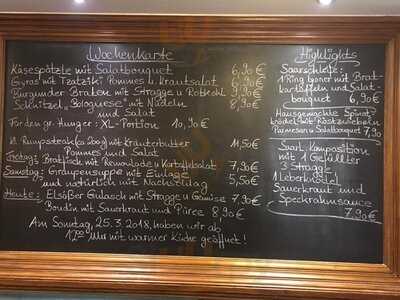 Wochenkarte
Käsespätzle mit Salatbouquet 6,90€
Gyros mit Tzatziki Pommes u. Krautsalat 6,90€
Burgunder Braten mit Stragge u Rotkohl 9,90€
Schnitzel „Bolognese" mit Nudeln 8,90€
und Salat
Für den gr. Hunger: XL-Portion 10,90€
Rumpsteak (ca 200g) mit Kräuterbutter 11,50€
Pommes und Salat
Freitag: Bratfisch mit Remoulade u Kartoffelsalat 7,90€
Samstag: Graupensuppe mit Einlage
und natürlich mit Nachschlag 5,50€
Heute: Elsößer Gulasch mit Stragge u Gemüse 7,90€
Boudin mit Sauerkraut und Püree 8,90€
Am Sonntag, 25.3.2018, haben wir ab
12:00 Uhr mit warmer Küche geöffnet!
Highlights
Saarschleife:
1 Ring Lyoner mit Brat-
kartoffeln und Salat-
bouquet 6,90€
Hausgemachte Spinat-
knödel mit Röstzwiebeln
Parmesan u Salatbouquet 7,90
Saarl. Komposition
mit 1 Gefüllter
3 Stragge
1 Leberknödel
Sauerkraut und
Speckrahmsauce
7,90€